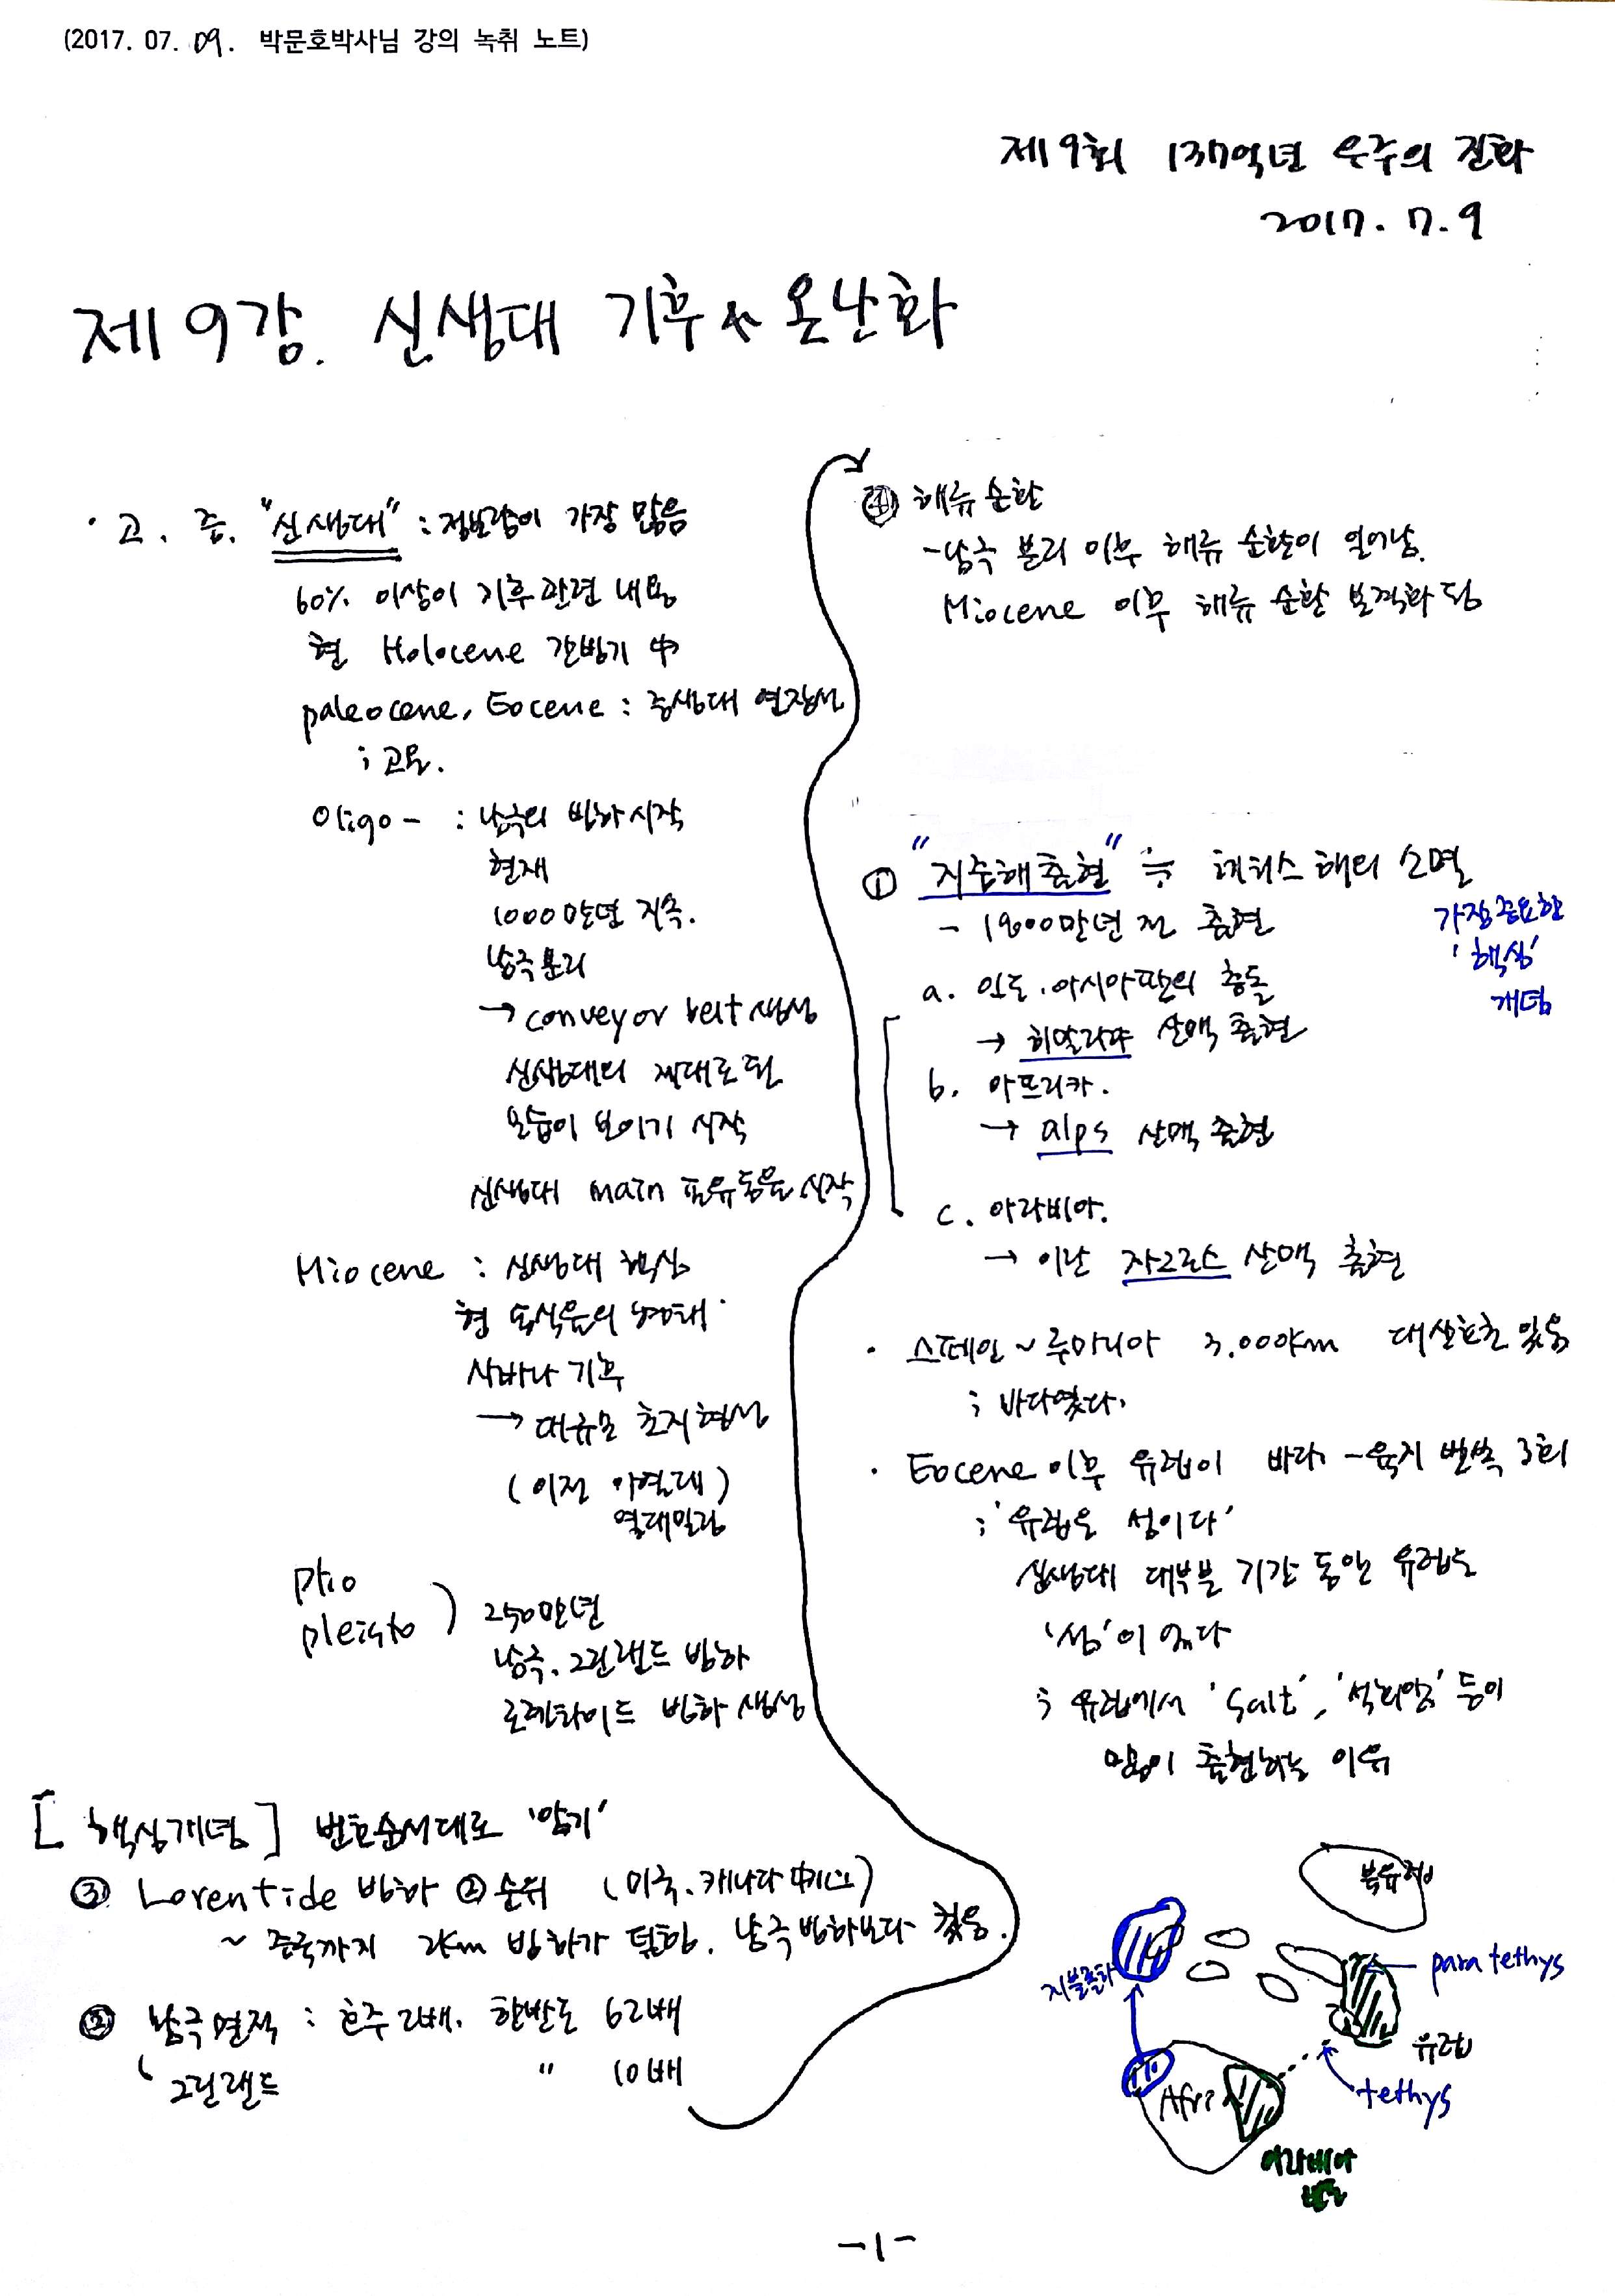 (2017. 07. 09. 박문호박사님 강의 녹취 노트)
제9회 137억년 우주의 진화
2017. 7. 9
제9강. 신생대 기후 & 온난화
· 고. 중. "신생대" : 정보량이 가장 많음
60% 이상이 기후관련 내용
현 Holocene 간빙기 中
paleocene, Eocene : 중생대 연장선
; 고온.
Oligo - : 남극의 빙하시작
현재
1000만년 지속.
남극분리
→ conveyor belt 생성
신생대의 제대로된
모습이 보이기 시작
신생대 main 포유동물 시작
Miocene : 신생대 핵심
현 동식물의 형태
사바나 기후
→ 대규모 초지형성
(이전 아열대)
열대밀림
Plio
pleisto ) 250만년
남극, 그린랜드 빙하
로렌타이드 빙하 생성
[핵심개념] 번호순서대로 '암기'
③ Lorentide 빙하 ② 순위 (미국, 캐나다
~ 중국까지 2km 빙하가 덮힘. 남극빙하보다 컸음.
② 남극면적 : 호주 2배. 한반도 62배
그린랜드 " 10배
④ 해류순환
- 남극 분리 이후 해류 순환이 일어남.
Miocene 이후 해류 순환 본격화 됨
① "지중해출현" ≒ 테티스 해의 소멸
가장중요한
'핵심'
개념
- 1900만년 전 출현
a. 인도.아시아판의 충돌
→ 히말라야 산맥 출현
b. 아프리카.
→ alps 산맥 출현
c. 아라비아.
→ 이란 자그로스 산맥 출현
· 스페인 ~ 루마니아 3.000km 대산호초 있음
; 바다였다.
· Eocene 이후 유럽이 바다 - 육지 변쏙 3회
; '유럽은 섬이다'
신생대 대부분 기간 동안 유럽는
'섬'이었다
; 유럽에서 'Salt', '석회암' 등이
많이 출현하는 이유
북유럽
지브롤터
para tethys
유럽
tethys
Afri
아라비아
반도
-1-